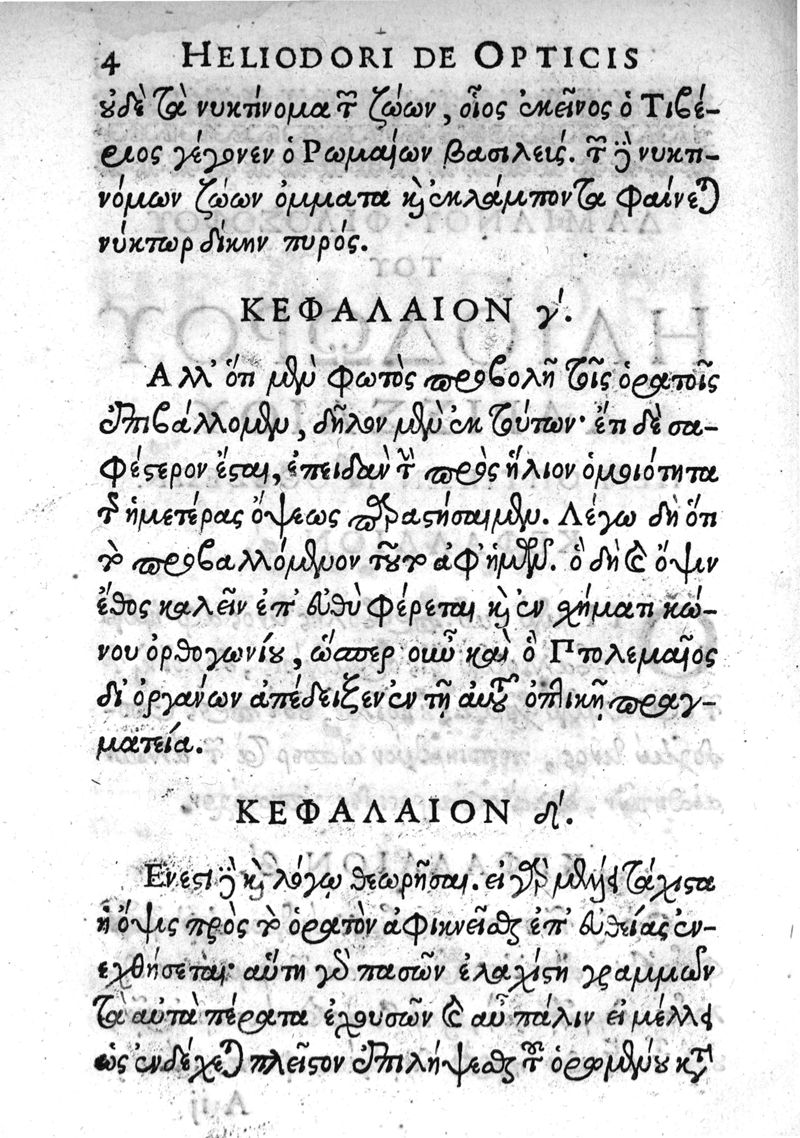 4 HELIODORI DE OPTICIS
ουδὲ τὰ νυκτίνομα τῶν ζώων, οἷος ἐκεῖνος ὁ Τιβέ-
ριος γέγονεν ὁ Ρωμαίων βασιλεύς. τῶν γὰρ νυκτι-
νόμων ζώων ὄμματα καὶ ἐκλάμποντα φαίνεται
νύκτωρ δίκην πυρός.
ΚΕΦΑΛΑΙΟΝ γ΄.
Αλλ' ὅτι μὲν φωτὸς προβολῇ τοῖς ὁρατοῖς
ἐπιβάλλομεν, δῆλον μὲν ἐκ τούτων· ἔτι δὲ σα-
φέστερον ἔσται, ἐπειδὰν τὴν πρὸς ἥλιον ὁμοιότητα
τῆς ἡμετέρας ὄψεως παραστήσαιμεν. Λέγω δὴ ὅτι
τὸ προβαλλόμενον τοῦτο ἀφ' ἡμῶν. ὃ δὴ καὶ ὄψιν
ἔθος καλεῖν ἐπ' εὐθὺ φέρεται καὶ ἐν σχήματι κώ-
νου ὀρθογωνίου, ὥσπερ οὖν καὶ ὁ Πτολεμαῖος
δι' ὀργάνων ἀπέδειξεν ἐν τῇ αὐτοῦ ὀπτικῇ πραγ-
ματεία.
ΚΕΦΑΛΑΙΟΝ δ΄.
Ενεστι γὰρ καὶ λόγῳ θεωρῆσαι. εἰ γὰρ μέλλει τάχιστα
ἡ ὄψις πρὸς τὸ ὁρατὸν ἀφικνεῖσθαι ἐπ' εὐθείας ἐν-
εχθήσεται· αὕτη γὰρ πασῶν ἐλαχίστη γραμμῶν
τὰ αὐτὰ πέρατα ἐχουσῶν καὶ αὖ πάλιν εἰ μέλλει
ὡς ἐνδέχεται πλεῖστον ἐπιλήψεσθαι τοῦ ὁρωμένου κατὰ
A ij